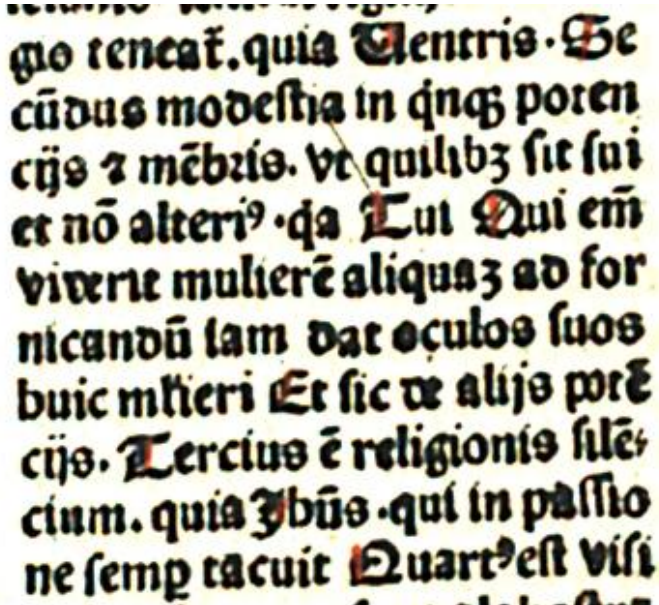 gio teneat᷑. quia Uentris. Se
cūdus modestia in q̇nqꝫ poten
cijs ⁊ mēbris. vt quilibꝫ sit sui
et nō alteriꝰ. q̇a Tui Qui em̄
viderit mulierē aliquaꝫ ad for
nicandū iam dat oculos suos
huic ml̄ieri Et sic de alijs potē
cijs. Tercius ē religionis silē⸗
cium. quia Jhūs. qui in passio
ne semꝑ tacuit Quartꝰ est visi